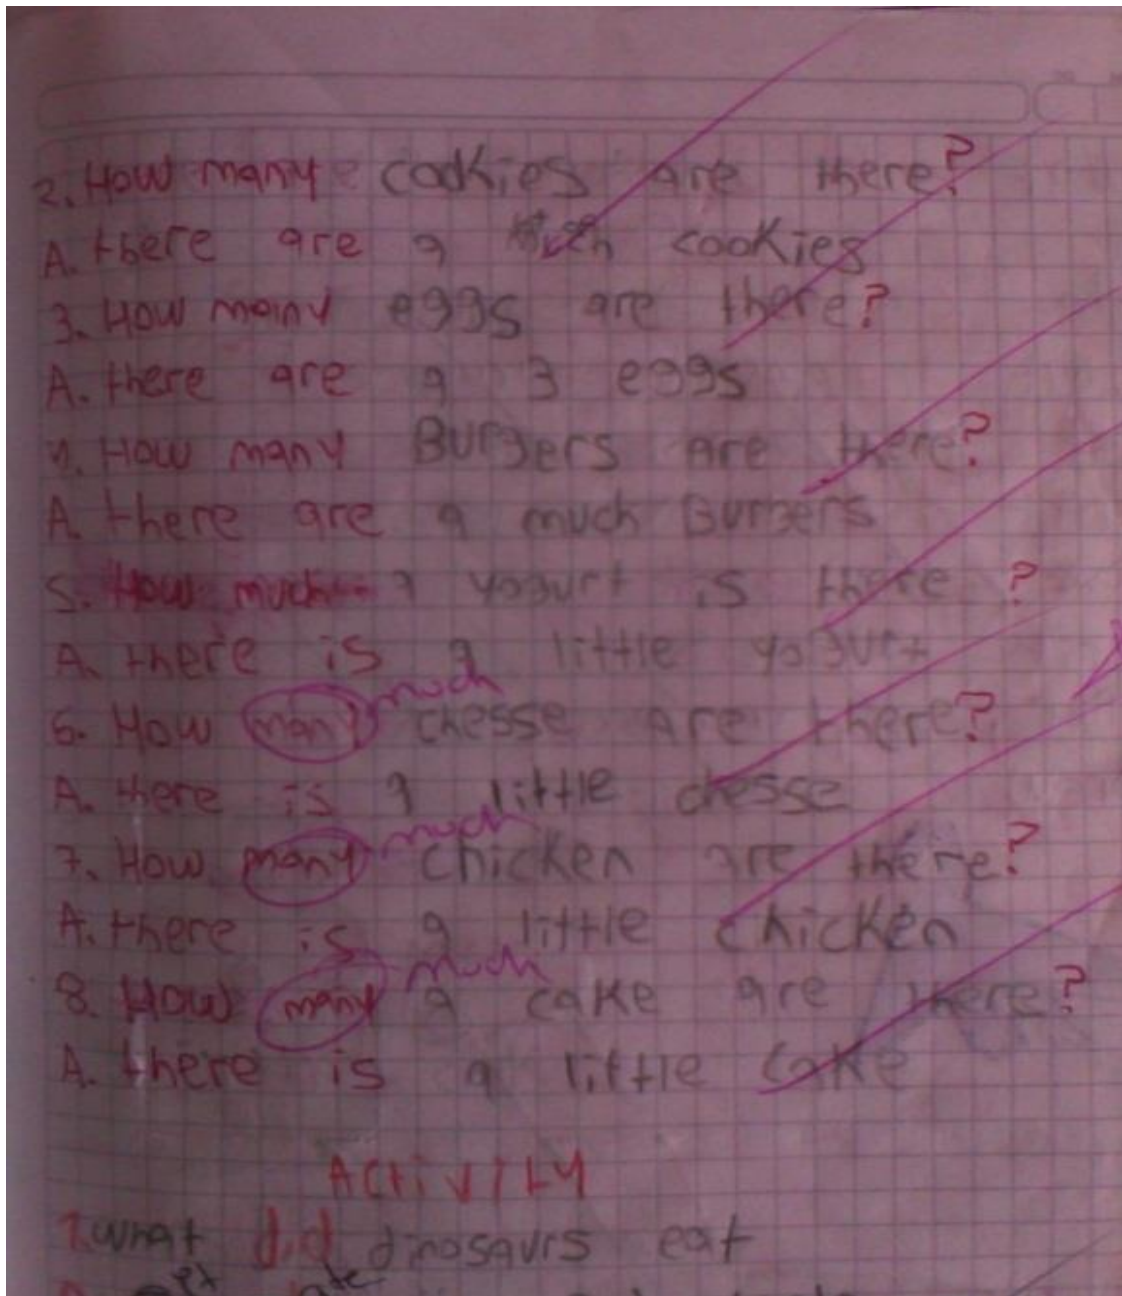 2. How many cookies are there?
A. there are a cookies
3. How many eggs are there?
A. there are a 3 eggs
4. How many Burgers are there?
A. there are a much Burgers
5. How much a yogurt is there ?
A. there is a little yogurt
much
6. How many chesse are there?
A. there is a little chesse
much
7. How many chicken are there?
A. there is a little chicken
much
8. How many a cake are there?
A. there is a little cake
Activity
1. what did dinosaurs eat